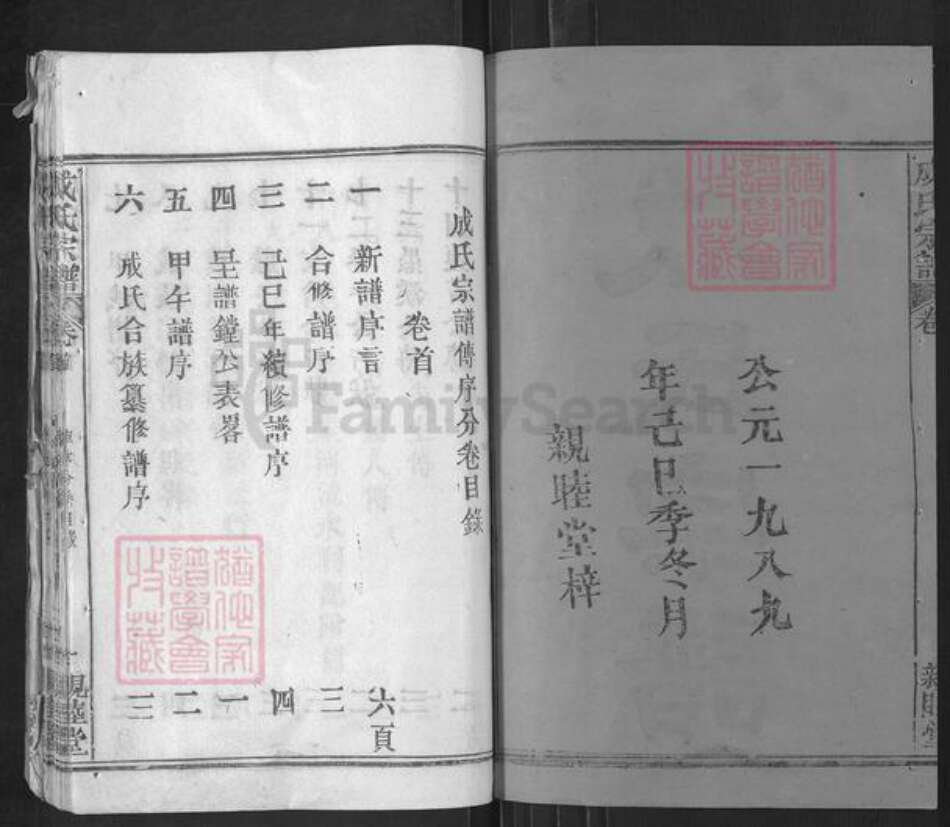 公元一九八九
年己巳季冬月
親睦堂梓
成氏宗譜
卷
親睦堂
成氏宗譜傳序分卷目錄
卷首
一 新譜序言 六頁
二 合修譜序 三
三 己巳年續修譜序 四
四 呈譜鏜公表畧 一
五 甲午譜序 二
六 成氏合族纂修譜序 三
成氏宗譜
卷首
親睦堂
譜學會
收藏
譜學會
收藏
FamilySearch